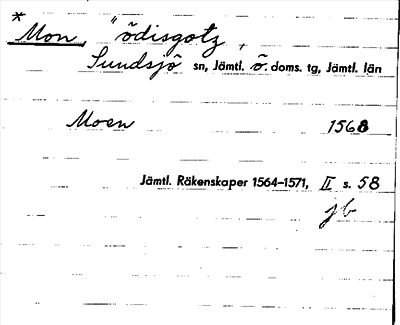 * Mon, "ödisgotz,
Sundsjö sn, Jämtl. ö. doms. tg, Jämtl. län
Moen 1568
Jämtl. Räkenskaper 1564–1571, II s. 58
jb